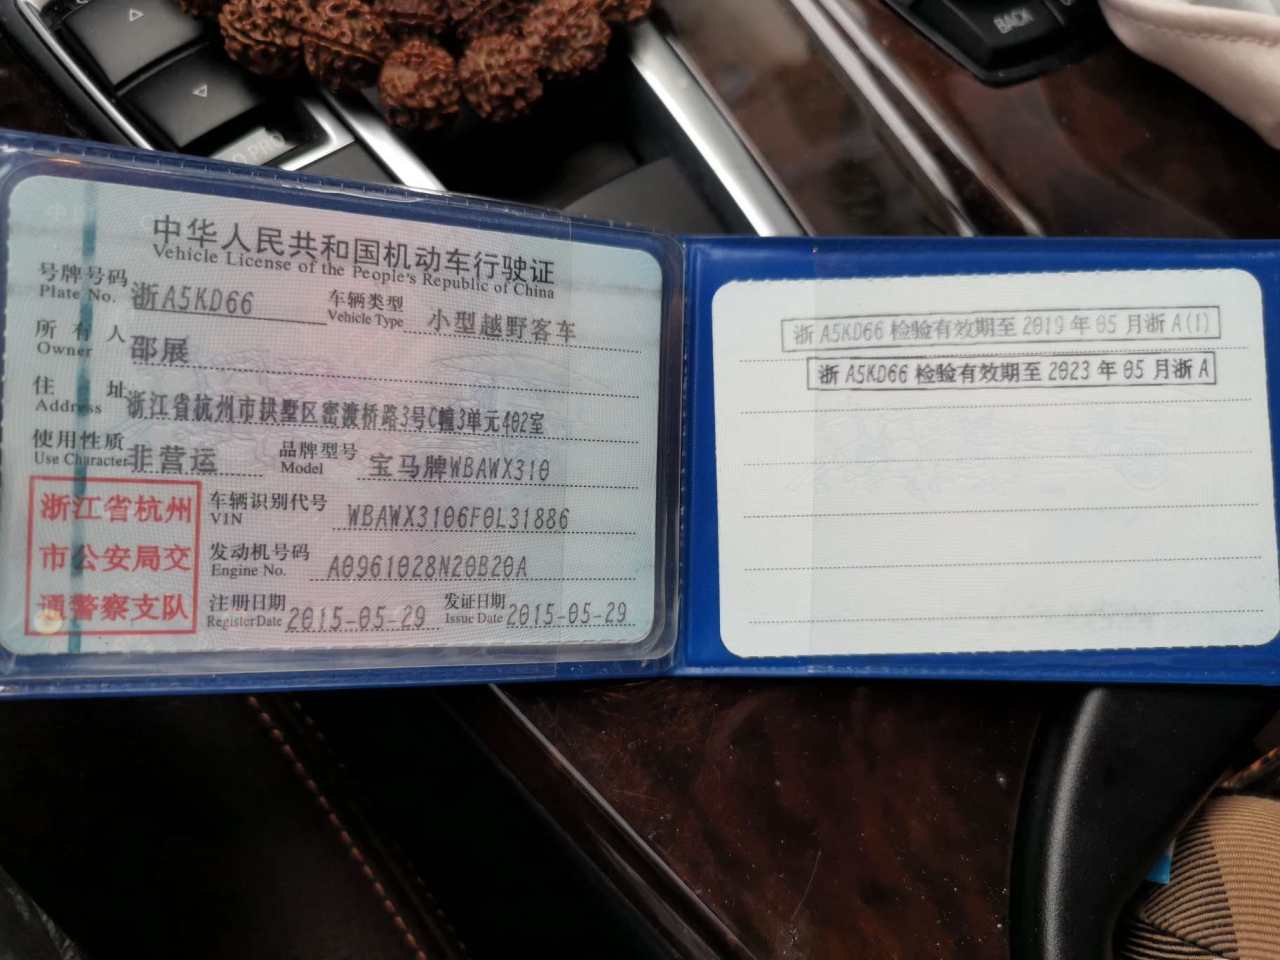 BACK
中华人民共和国机动车行驶证
Vehicle License of the People's Republic of China
号牌号码 浙A5KD66 车辆类型 小型越野客车
Plate No. Vehicle Type
所有人 邵展
Owner
住址 浙江省杭州市拱墅区密渡桥路3号C幢3单元402室
Address
使用性质 非营运 品牌型号 宝马牌WBAWX310
Use Character Model
浙江省杭州
市公安局交
通警察支队
车辆识别代号 WBAWX3106F0L31886
VIN
发动机号码 A0961028N20B20A
Engine No.
注册日期 2015-05-29 发证日期 2015-05-29
Register Date Issue Date
浙A5KD66 检验有效期至 2019 年 05 月浙A(1)
浙A5KD66 检验有效期至 2023 年 05 月浙A